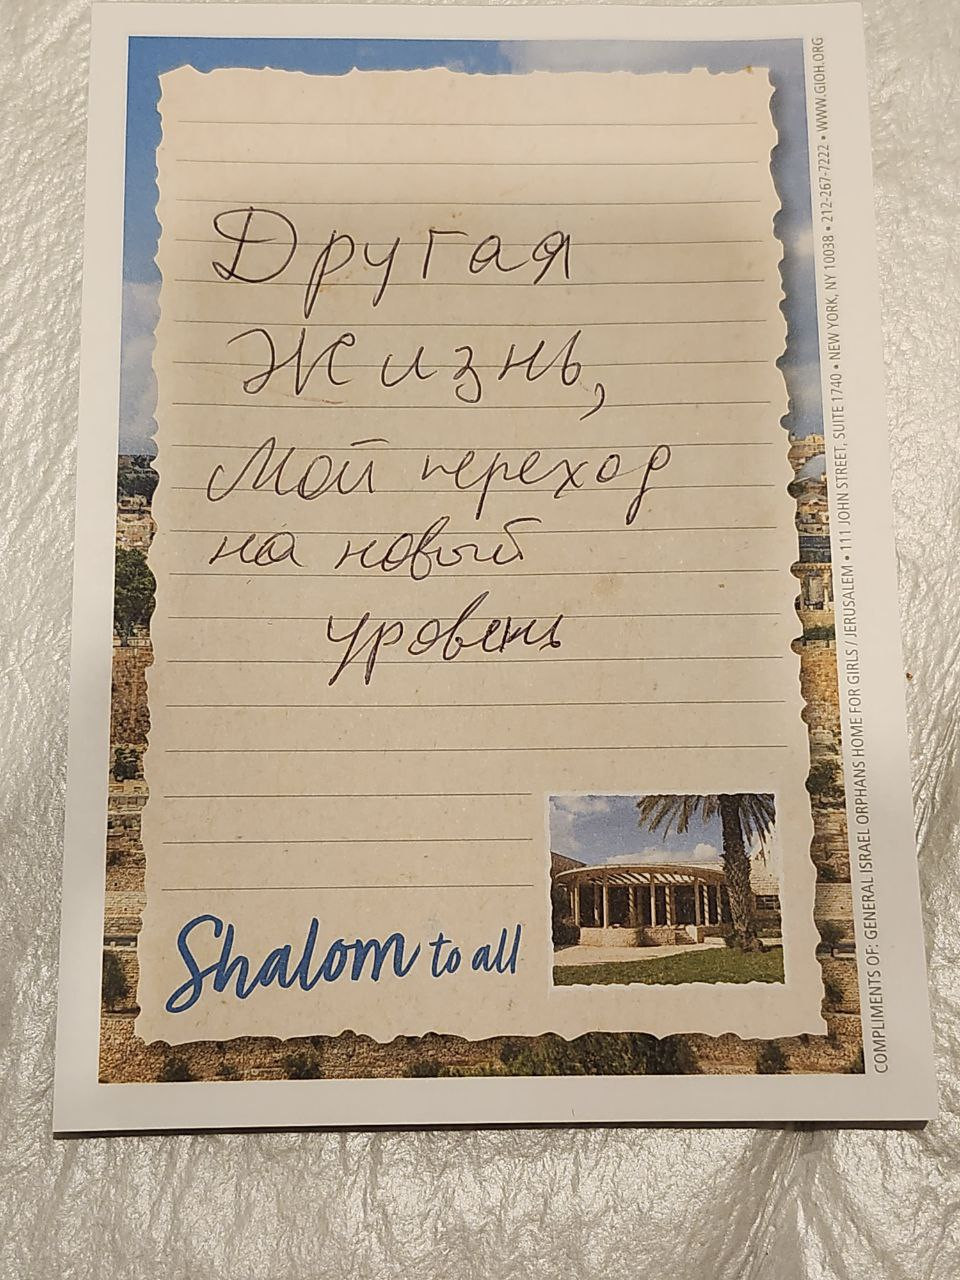 Другая
Жизнь,
Мой переход
на новый
уровень
Shalom to all
COMPLIMENTS OF: GENERAL ISRAEL ORPHANS HOME FOR GIRLS / JERUSALEM • 111 JOHN STREET, SUITE 1740 • NEW YORK, NY 10038 • 212-267-7222 • WWW.GIOH.ORG